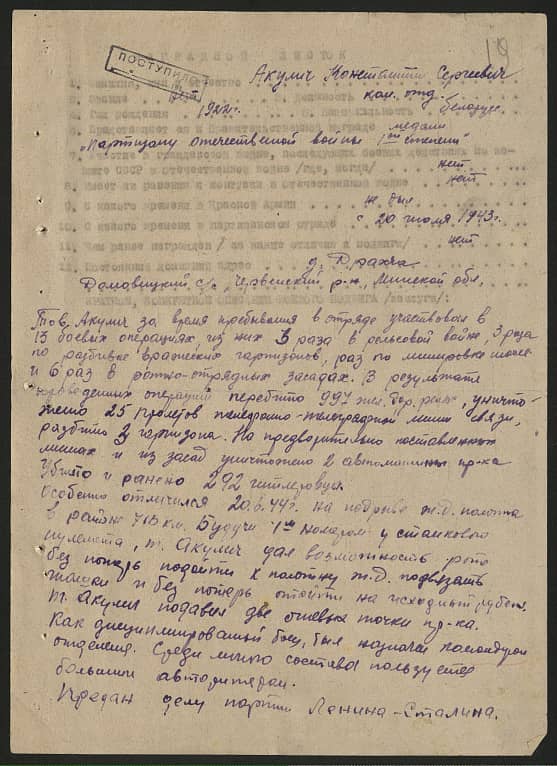 19
НАГРАДНОЙ ЛИСТОК
ПОСТУПИЛО
Акулич Константин Сергеевич
2. Звание нет Должность ком. отд.
4. Год рождения 1922г. белорус.
6. Представляется к Правительственной награде медали
"Партизану отечественной войны 1ой степени"
7. Участие в гражданской войне, последующих боевых действиях по за-
щите СССР и отечественной войне /где, когда/ нет
8. Имеет ли ранения и контузии в отечественной войне нет
9. С какого времени в Красной Армии не был
10. С какого времени в партизанском отряде с 20 июля 1943г.
11. Чем ранее награжден / за какие отличия нет
12. Постоянный домашний адрес д. Драхча
Доловицкий с/с Червенский р-н, Минской обл.
Тов. Акулич за время пребывания в отряде участвовал в
13 боевых операциях, из них 3 раза в рельсовой войне, 3 раза
по разбивке вражеских гарнизонов, раз по минировке шоссе
и 6 раз в ротно-отрядных засадах. В результате
проведенных операций перебито 997 жел. дор. рельс, уничто-
жено 25 пролетов телефонно-телеграфной линии связи,
разбито 3 гарнизона. На предворительно поставленных
минах и из засад уничтожено 2 автомашины пр-ка
Убито и ранено 292 гитлеровца.
Особенно отличился 20.6.44г. на подрыве ж.д. полотна
в районе 713 км. Будучи 1ым номером у станкового
пулемета, т. Акулич дал возможность роте
без потерь подойти к полотну ж.д. подвязать
шашки и без потерь отойти на исходный рубеж.
т. Акулич подавил две огневые точки пр-ка.
Как дисциплинированый боец, был назначен командиром
отделения. Среди личного состава пользуется
большим авторитетом.
Предан делу партии Ленина-Сталина.